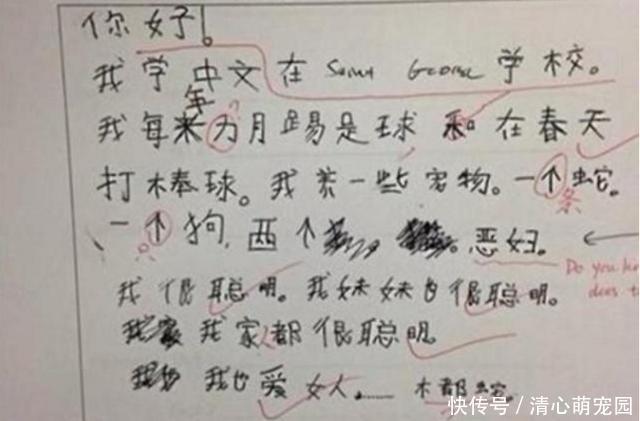 你好!
我学中文在 Saint George 学校。
年
我每 九月踢足球 和 在春天
打棒球。我养一些宠物。一个蛇。
条
一个狗,两个 恶妇。
Do you kn
我很聪明。我妹妹也很聪明。
does t
我家 我家人都很聪明。
我也爱女人……
快传号/清心萌宠园